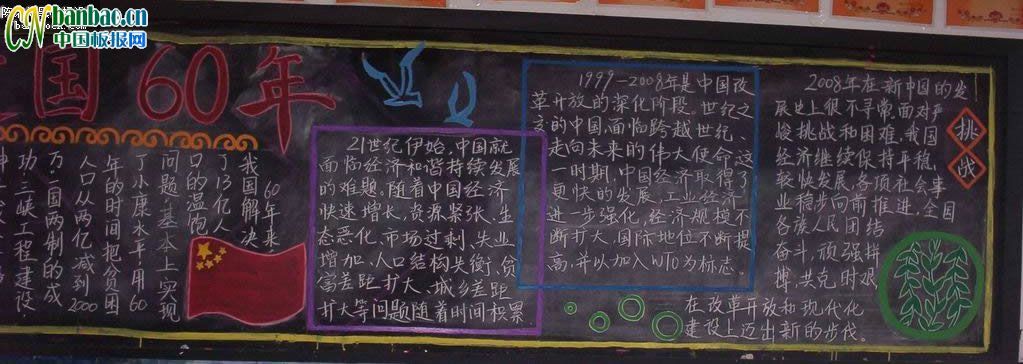 banbac.cn
中国板报网
国60年
60年来
我国解决
了13亿人
口的温饱
问题基本上实现
了小康水平用60
年的时间把贫困
人口从两亿减到2000
万.一国两制的成
功.三峡工程建设
21世纪伊始,中国就
面临经济和谐持续发展
的难题.随着中国经济
快速增长,资源紧张、生
态恶化、市场过剩、失业
增加、人口结构失衡、贫
富差距扩大、城乡差距
扩大等问题随着时间积累
1999—2008年是中国改
革开放的深化阶段.世纪之
交的中国,面临跨越世纪
走向未来的伟大使命.这
一时期,中国经济取得了
更快的发展,工业经济
进一步强化,经济规模不
断扩大,国际地位不断提
高,并以加入WTO为标志.
2008年在新中国的发
展史上很不寻常.面对严
峻挑战和困难,我国
经济继续保持平稳,
较快发展,各项社会事
业稳步向前推进,全国
各族人民团结
奋斗,顽强拼
搏,共克时艰
在改革开放和现代化
建设上迈出新的步伐.
挑
战